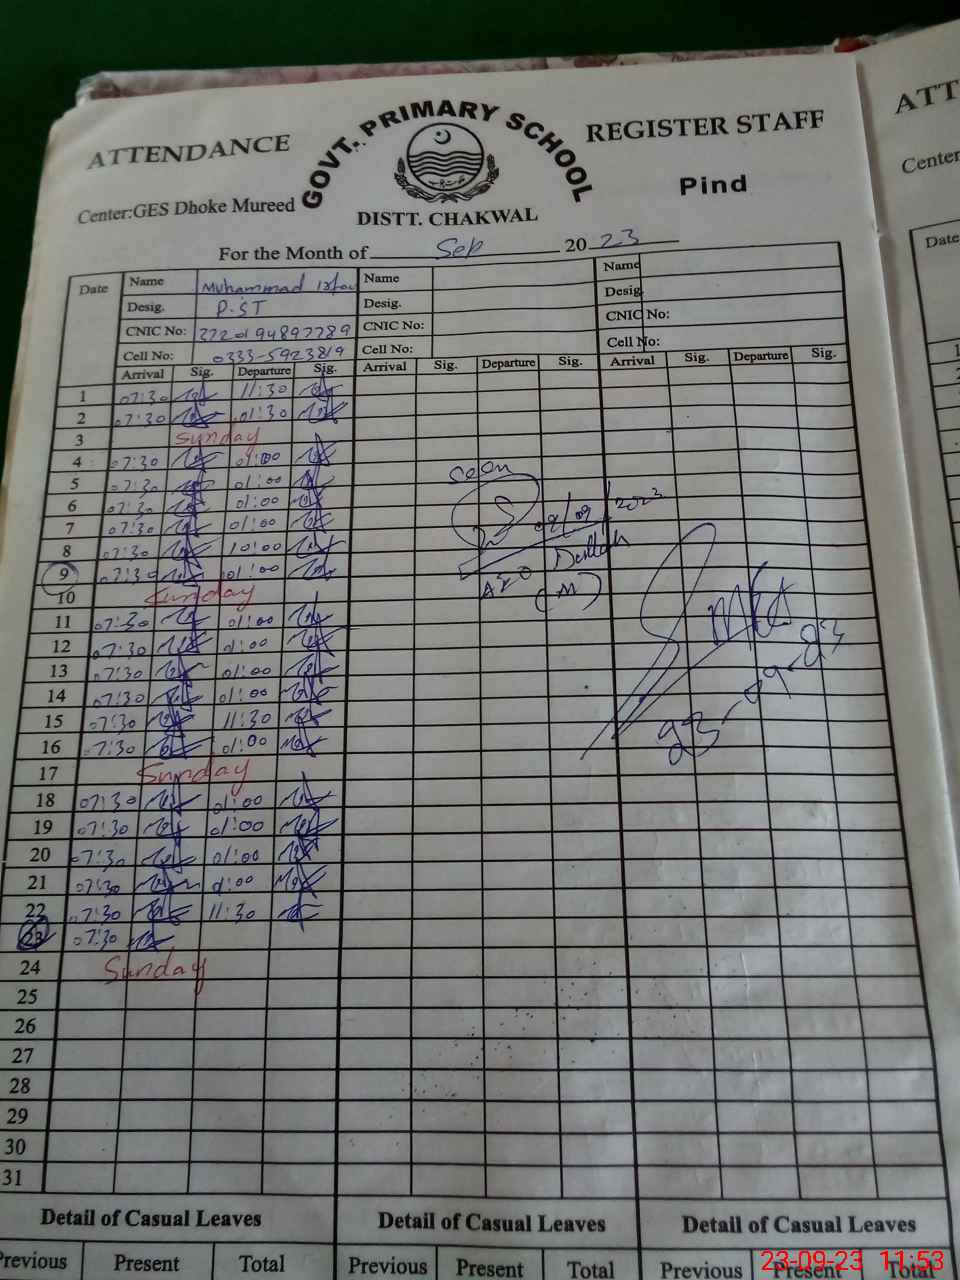 ATTENDANCE GOVT. PRIMARY SCHOOL REGISTER STAFF
Center:GES Dhoke Mureed Pind
DISTT. CHAKWAL
For the Month of Sep 2023
Date Name Muhammad Name Name
Desig. P.ST Desig. Desig
CNIC No: CNIC No: CNIC No:
Cell No: 0333-5923819 Cell No: Cell No:
Arrival Sig. Departure Sig. Arrival Sig. Departure Sig. Arrival Sig. Departure Sig.
1 07:30 11:30
2 07:30 01:30
3 Sunday
4 07:30 01:00
5 07:30 01:00
6 07:30 01:00
7 07:30 01:00
8 07:30 10:00
9 07:30 01:00
10 Sunday
11 07:30 01:00
12 07:30 01:00
13 07:30 01:00
14 07:30 01:00
15 07:30 11:30
16 07:30 01:00
17 Sunday
18 07:30 01:00
19 07:30 01:00
20 07:30 01:00
21 07:30 01:00
22 07:30 11:30
23 07:30
24 Sunday
25
26
27
28
29
30
31
Seen
/09/2023
AEO
(M)
23-09-23
Detail of Casual Leaves Detail of Casual Leaves Detail of Casual Leaves
Previous Present Total Previous Present Total Previous Present Total
ATT
Center
Date
23-09-23 11:53